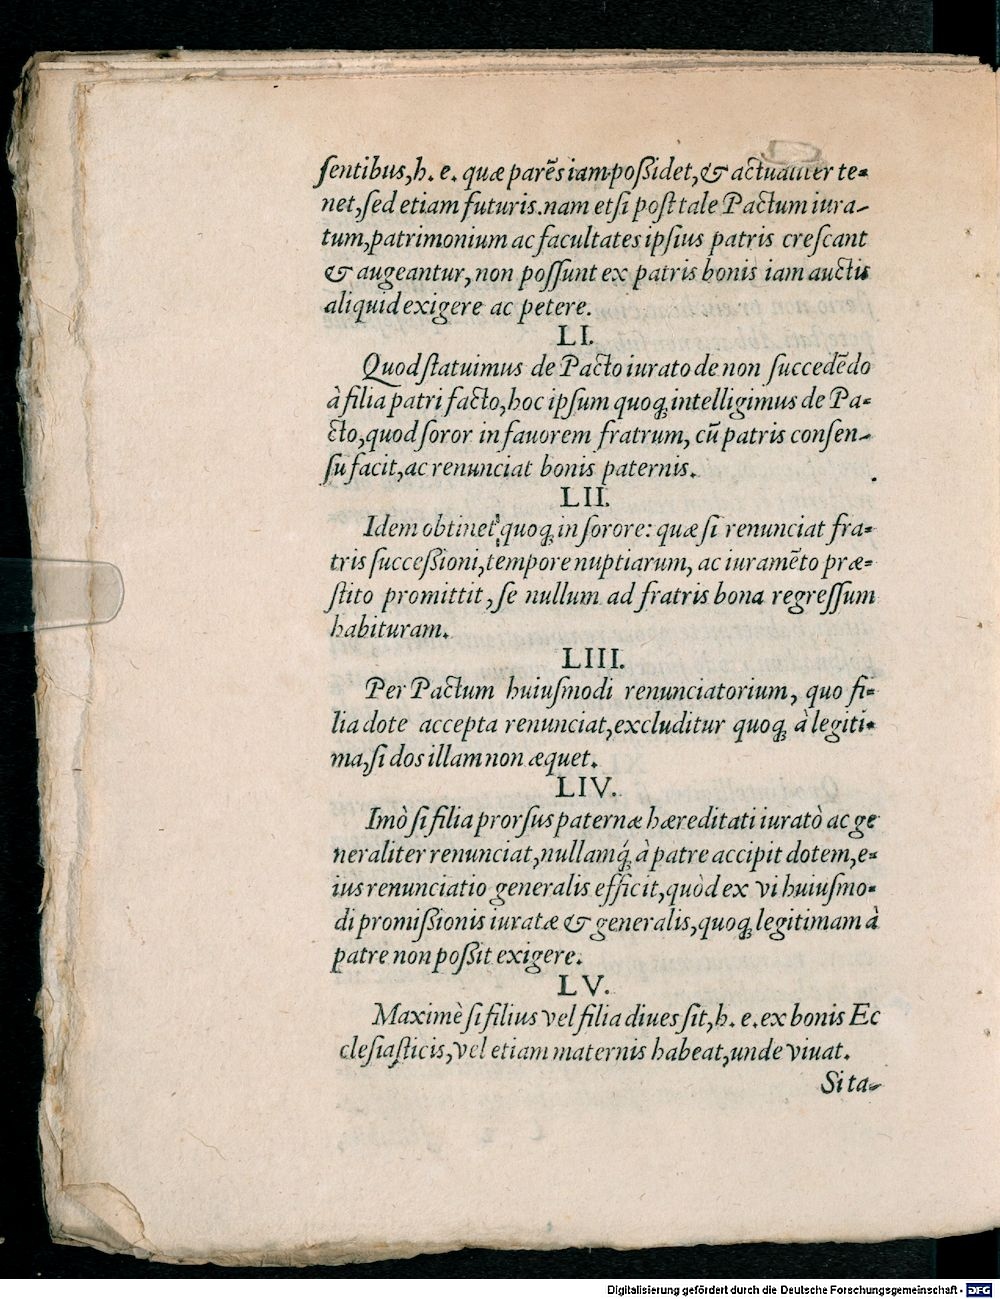 ſentibus, h. e. quæ parẽs iam poßidet, & actualiter te-
net, ſed etiam futuris. nam etſi poſt tale Pactum iura-
tum, patrimonium ac facultates ipſius patris creſcant
& augeantur, non poſſunt ex patris bonis iam auctis
aliquid exigere ac petere.
LI.
Quod ſtatuimus de Pacto iurato de non ſuccedẽdo
à filia patri facto, hoc ipſum quoq; intelligimus de Pa-
cto, quod ſoror in fauorem fratrum, cũ patris conſen-
ſu facit, ac renunciat bonis paternis.
LII.
Idem obtinet quoq; in ſorore: quæ ſi renunciat fra-
tris ſucceßioni, tempore nuptiarum, ac iuramẽto præ-
ſtito promittit, ſe nullum ad fratris bona regreſſum
habituram.
LIII.
Per Pactum huiuſmodi renunciatorium, quo fi-
lia dote accepta renunciat, excluditur quoq; à legiti-
ma, ſi dos illam non æquet.
LIV.
Imò ſi filia prorſus paternæ hæreditati iuratò ac ge
neraliter renunciat, nullamq́; à patre accipit dotem, e-
ius renunciatio generalis efficit, quòd ex vi huiuſmo-
di promißionis iuratæ & generalis, quoq; legitimam à
patre non poßit exigere.
LV.
Maximè ſi filius vel filia diues ſit, h. e. ex bonis Ec
cleſiaſticis, vel etiam maternis habeat, unde viuat.
Si ta-
Digitalisierung gefördert durch die Deutsche Forschungsgemeinschaft - DFG